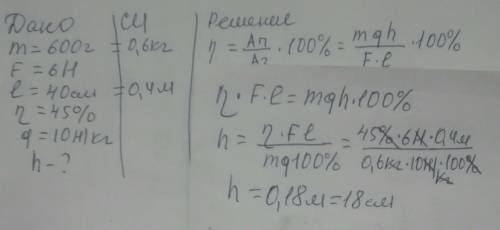 Дано
СИ
m = 600г = 0,6кг
F = 6Н
l = 40см = 0,4м
η = 45%
g = 10Н/кг
h - ?
Решение
η = Ап/Аз · 100% = mgh/F·l · 100%
η · F · l = mgh · 100%
h = η · Fl/mg100% = 45% · 6Н · 0,4м/0,6кг · 10Н/кг · 100%
h = 0,18м = 18см